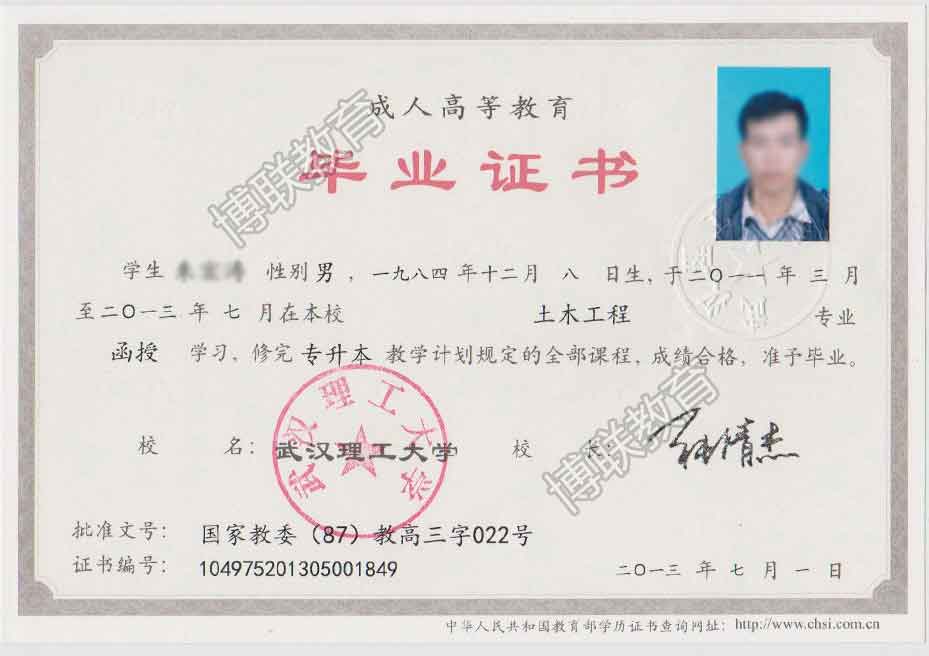 成人高等教育
毕业证书
学生 性别 男 ，一九八四 年 十二 月 八 日生，于 二〇一一 年 三 月
至 二〇一三 年 七 月在本校 土木工程 专业
函授 学习，修完 专升本 教学计划规定的全部课程，成绩合格，准予毕业。
校 名：武汉理工大学 校 长：
武汉理工大学
批准文号： 国家教委（87）教高三字022号
证书编号： 104975201305001849
二〇一三 年 七 月 一 日
中华人民共和国教育部学历证书查询网址：http://www.chsi.com.cn
博联教育
博联教育